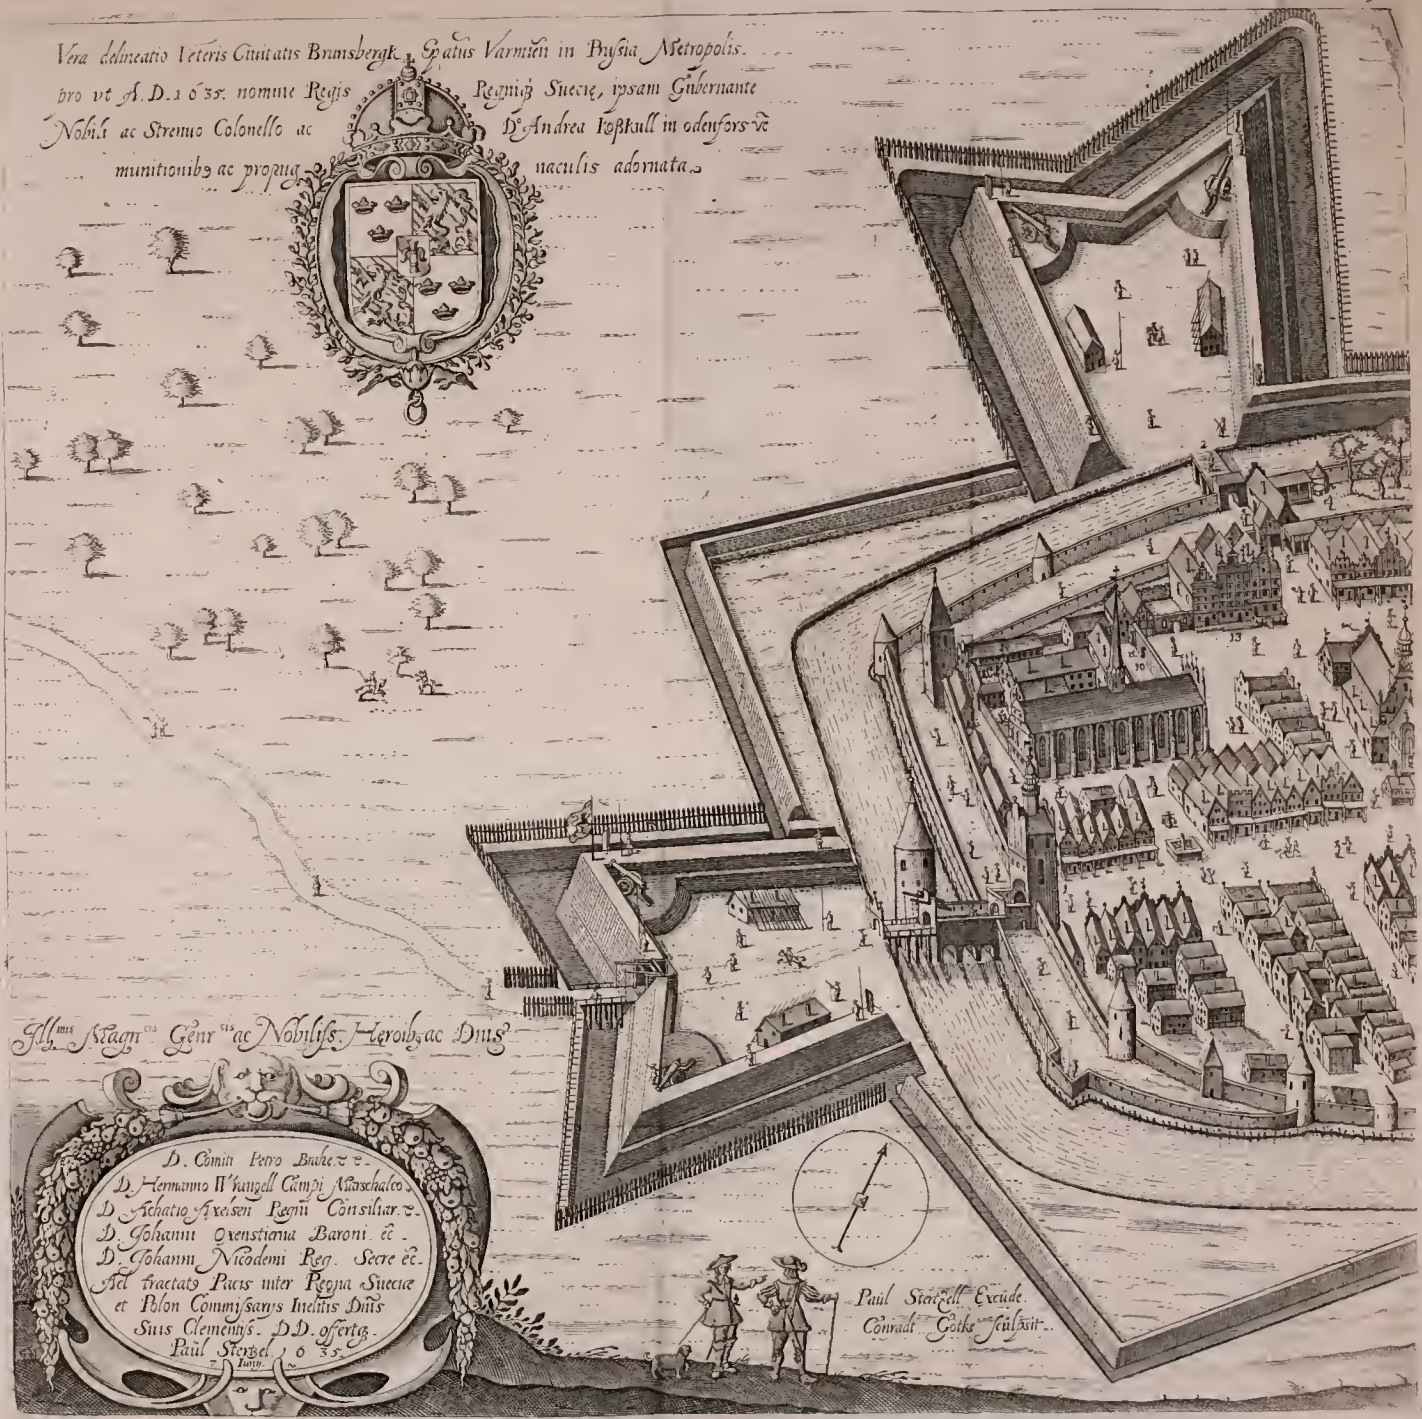 Vera delineatio Veteris Civitatis Brunsbergk Epatus Varmien in Prusia Metropolis.
pro vt A. D. 1635. nomine Regis Regniq3 Suecię, ipsam Gubernante
Nobili ac Strenuo Colonello ac Do Andrea Koßkull in odenfors
munitionib9 ac propug naculis adornata.
2
13
10
Illmis Magncis Genrsis ac Nobilifs. Heroib3 ac Dnis
D. Comiti Petro Brahe.
D. Hermanno Wrangell Campi Marschalco
D Achatio Axelsen Regni Consiliar.
D. Johanni Oxenstierna Baroni ec
D. Johanni Nicodemi Reg. Secre ec
Ad tractat9 Pacis inter Regna Sueciæ
et Polon Commisarys Inclitis Dnis
Suis Clementifs. DD. offertq3.
Paul Stertzel 1635.
7 Iuny.
Paul Stertzell Excude.
Conradt Götke sculpsit.